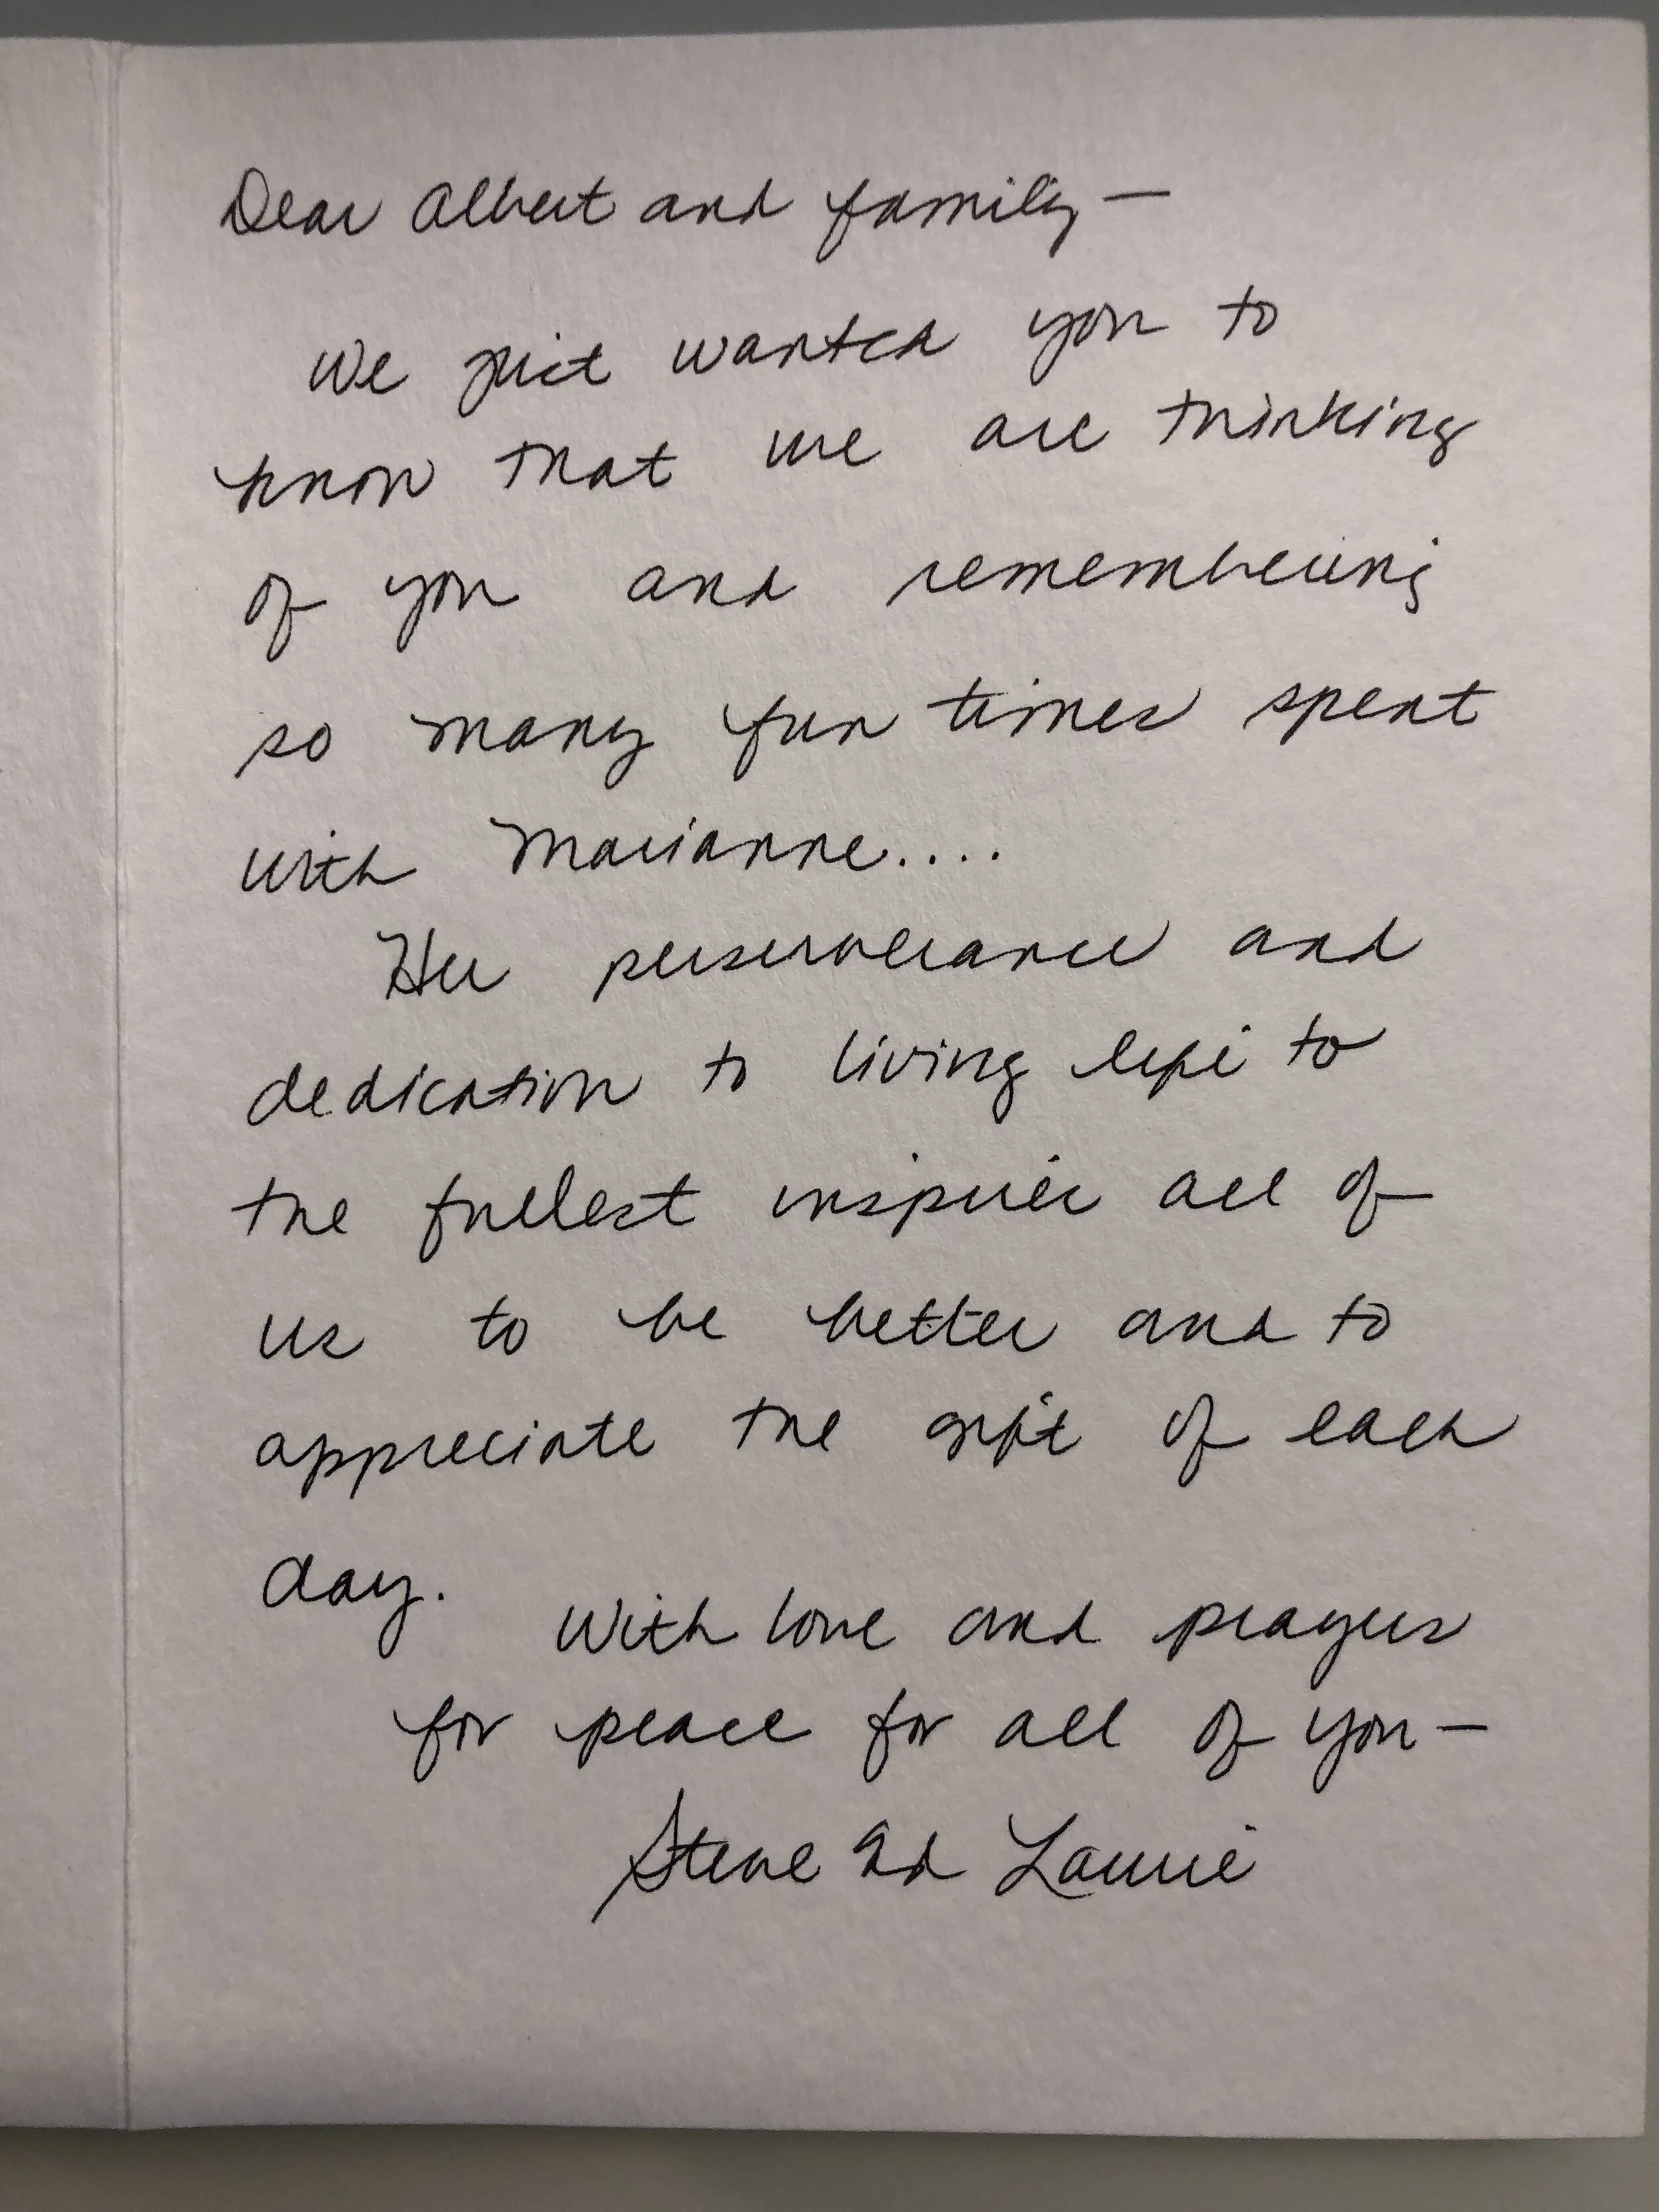 Dear Albert and family —
We just wanted you to
know that we are thinking
of you and remembering
so many fun times spent
with Marianne....
Her perserverance and
dedication to living life to
the fullest inspires all of
us to be better and to
appreciate the gift of each
day.
With love and prayers
for peace for all of you —
Steve and Laurie